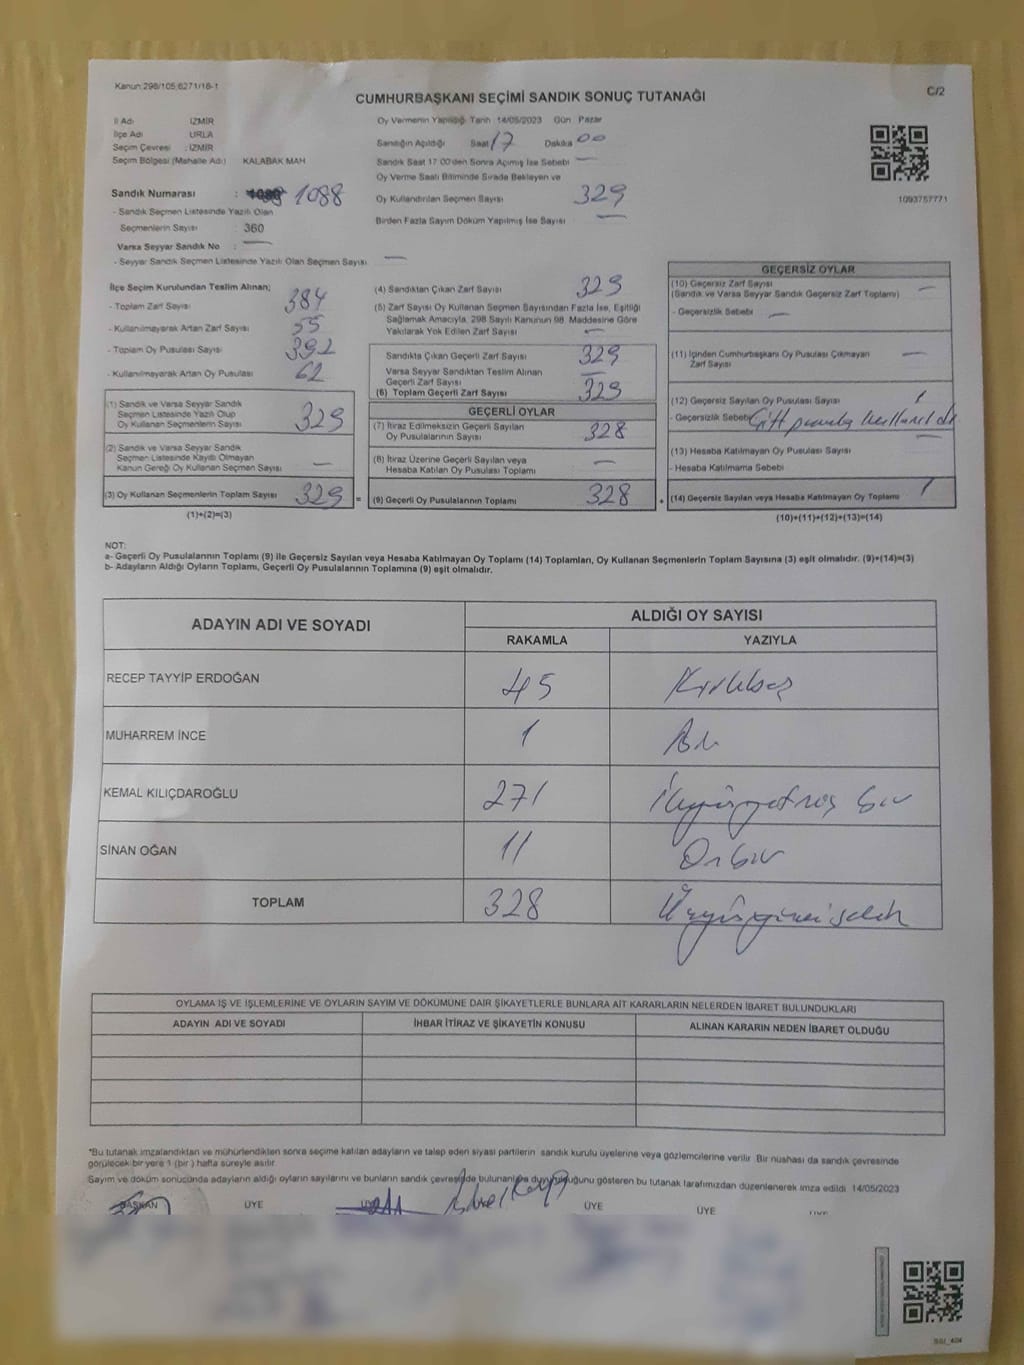 Kanun:298/105,6271/16-1
C/2
CUMHURBAŞKANI SEÇİMİ SANDIK SONUÇ TUTANAĞI
İl Adı İZMİR
İlçe Adı URLA
Seçim Çevresi : İZMİR
Seçim Bölgesi (Mahalle Adı) KALABAK MAH
Sandık Numarası : 1088
- Sandık Seçmen Listesinde Yazılı Olan
Seçmenlerin Sayısı : 360
Varsa Seyyar Sandık No : —
- Seyyar Sandık Seçmen Listesinde Yazılı Olan Seçmen Sayısı —
Oy Vermenin Yapıldığı Tarih 14/05/2023 Gün Pazar
Sandığın Açıldığı Saat 17 Dakika 00
Sandık Saat 17:00'den Sonra Açılmış İse Sebebi —
Oy Verme Saati Bitiminde Sırada Bekleyen ve
Oy Kullandırılan Seçmen Sayısı 329
Birden Fazla Sayım Döküm Yapılmış İse Sayısı —
1093757771
İlçe Seçim Kurulundan Teslim Alınan;
- Toplam Zarf Sayısı 384
- Kullanılmayarak Artan Zarf Sayısı 55
- Toplam Oy Pusulası Sayısı 392
- Kullanılmayarak Artan Oy Pusulası 62
(1) Sandık ve Varsa Seyyar Sandık
Seçmen Listesinde Yazılı Olup
Oy Kullanan Seçmenlerin Sayısı 329
(2) Sandık ve Varsa Seyyar Sandık
Seçmen Listesinde Kayıtlı Olmayan
Kanun Gereği Oy Kullanan Seçmen Sayısı —
(3) Oy Kullanan Seçmenlerin Toplam Sayısı 329
(1)+(2)=(3)
=
(4) Sandıktan Çıkan Zarf Sayısı 329
(5) Zarf Sayısı Oy Kullanan Seçmen Sayısından Fazla İse, Eşitliği
Sağlamak Amacıyla, 298 Sayılı Kanunun 98. Maddesine Göre
Yakılarak Yok Edilen Zarf Sayısı —
Sandıkta Çıkan Geçerli Zarf Sayısı 329
Varsa Seyyar Sandıktan Teslim Alınan
Geçerli Zarf Sayısı —
(6) Toplam Geçerli Zarf Sayısı 329
GEÇERLİ OYLAR
(7) İtiraz Edilmeksizin Geçerli Sayılan
Oy Pusulalarının Sayısı 328
(8) İtiraz Üzerine Geçerli Sayılan veya
Hesaba Katılan Oy Pusulası Toplamı —
(9) Geçerli Oy Pusulalarının Toplamı 328
+
GEÇERSİZ OYLAR
(10) Geçersiz Zarf Sayısı
(Sandık ve Varsa Seyyar Sandık Geçersiz Zarf Toplamı) —
- Geçersizlik Sebebi —
(11) İçinden Cumhurbaşkanı Oy Pusulası Çıkmayan
Zarf Sayısı —
(12) Geçersiz Sayılan Oy Pusulası Sayısı 1
- Geçersizlik Sebebi Çift pusula kullanıldı
(13) Hesaba Katılmayan Oy Pusulası Sayısı —
- Hesaba Katılmama Sebebi
(14) Geçersiz Sayılan veya Hesaba Katılmayan Oy Toplamı 1
(10)+(11)+(12)+(13)=(14)
NOT:
a- Geçerli Oy Pusulalarının Toplamı (9) ile Geçersiz Sayılan veya Hesaba Katılmayan Oy Toplamı (14) Toplamları, Oy Kullanan Seçmenlerin Toplam Sayısına (3) eşit olmalıdır. (9)+(14)=(3)
b- Adayların Aldığı Oyların Toplamı, Geçerli Oy Pusulalarının Toplamına (9) eşit olmalıdır.
ADAYIN ADI VE SOYADI ALDIĞI OY SAYISI
RAKAMLA YAZIYLA
RECEP TAYYİP ERDOĞAN 45 Kırkbeş
MUHARREM İNCE 1 Bir
KEMAL KILIÇDAROĞLU 271 İkiyüzyetmiş bir
SİNAN OĞAN 11 Onbir
TOPLAM 328 Üçyüzyirmisekiz
OYLAMA İŞ VE İŞLEMLERİNE VE OYLARIN SAYIM VE DÖKÜMÜNE DAİR ŞİKAYETLERLE BUNLARA AİT KARARLARIN NELERDEN İBARET BULUNDUKLARI
ADAYIN ADI VE SOYADI İHBAR İTİRAZ VE ŞİKAYETİN KONUSU ALINAN KARARIN NEDEN İBARET OLDUĞU
*Bu tutanak imzalandıktan ve mühürlendikten sonra seçime katılan adayların ve talep eden siyasi partilerin sandık kurulu üyelerine veya gözlemcilerine verilir. Bir nüshası da sandık çevresinde
görülecek bir yere 1 (bir) hafta süreyle asılır.
Sayım ve döküm sonucunda adayların aldığı oyların sayılarını ve bunların sandık çevresinde bulunanlara duyurulduğunu gösteren bu tutanak tarafımızdan düzenlenerek imza edildi 14/05/2023
BAŞKAN ÜYE ÜYE ÜYE ÜYE ÜYE